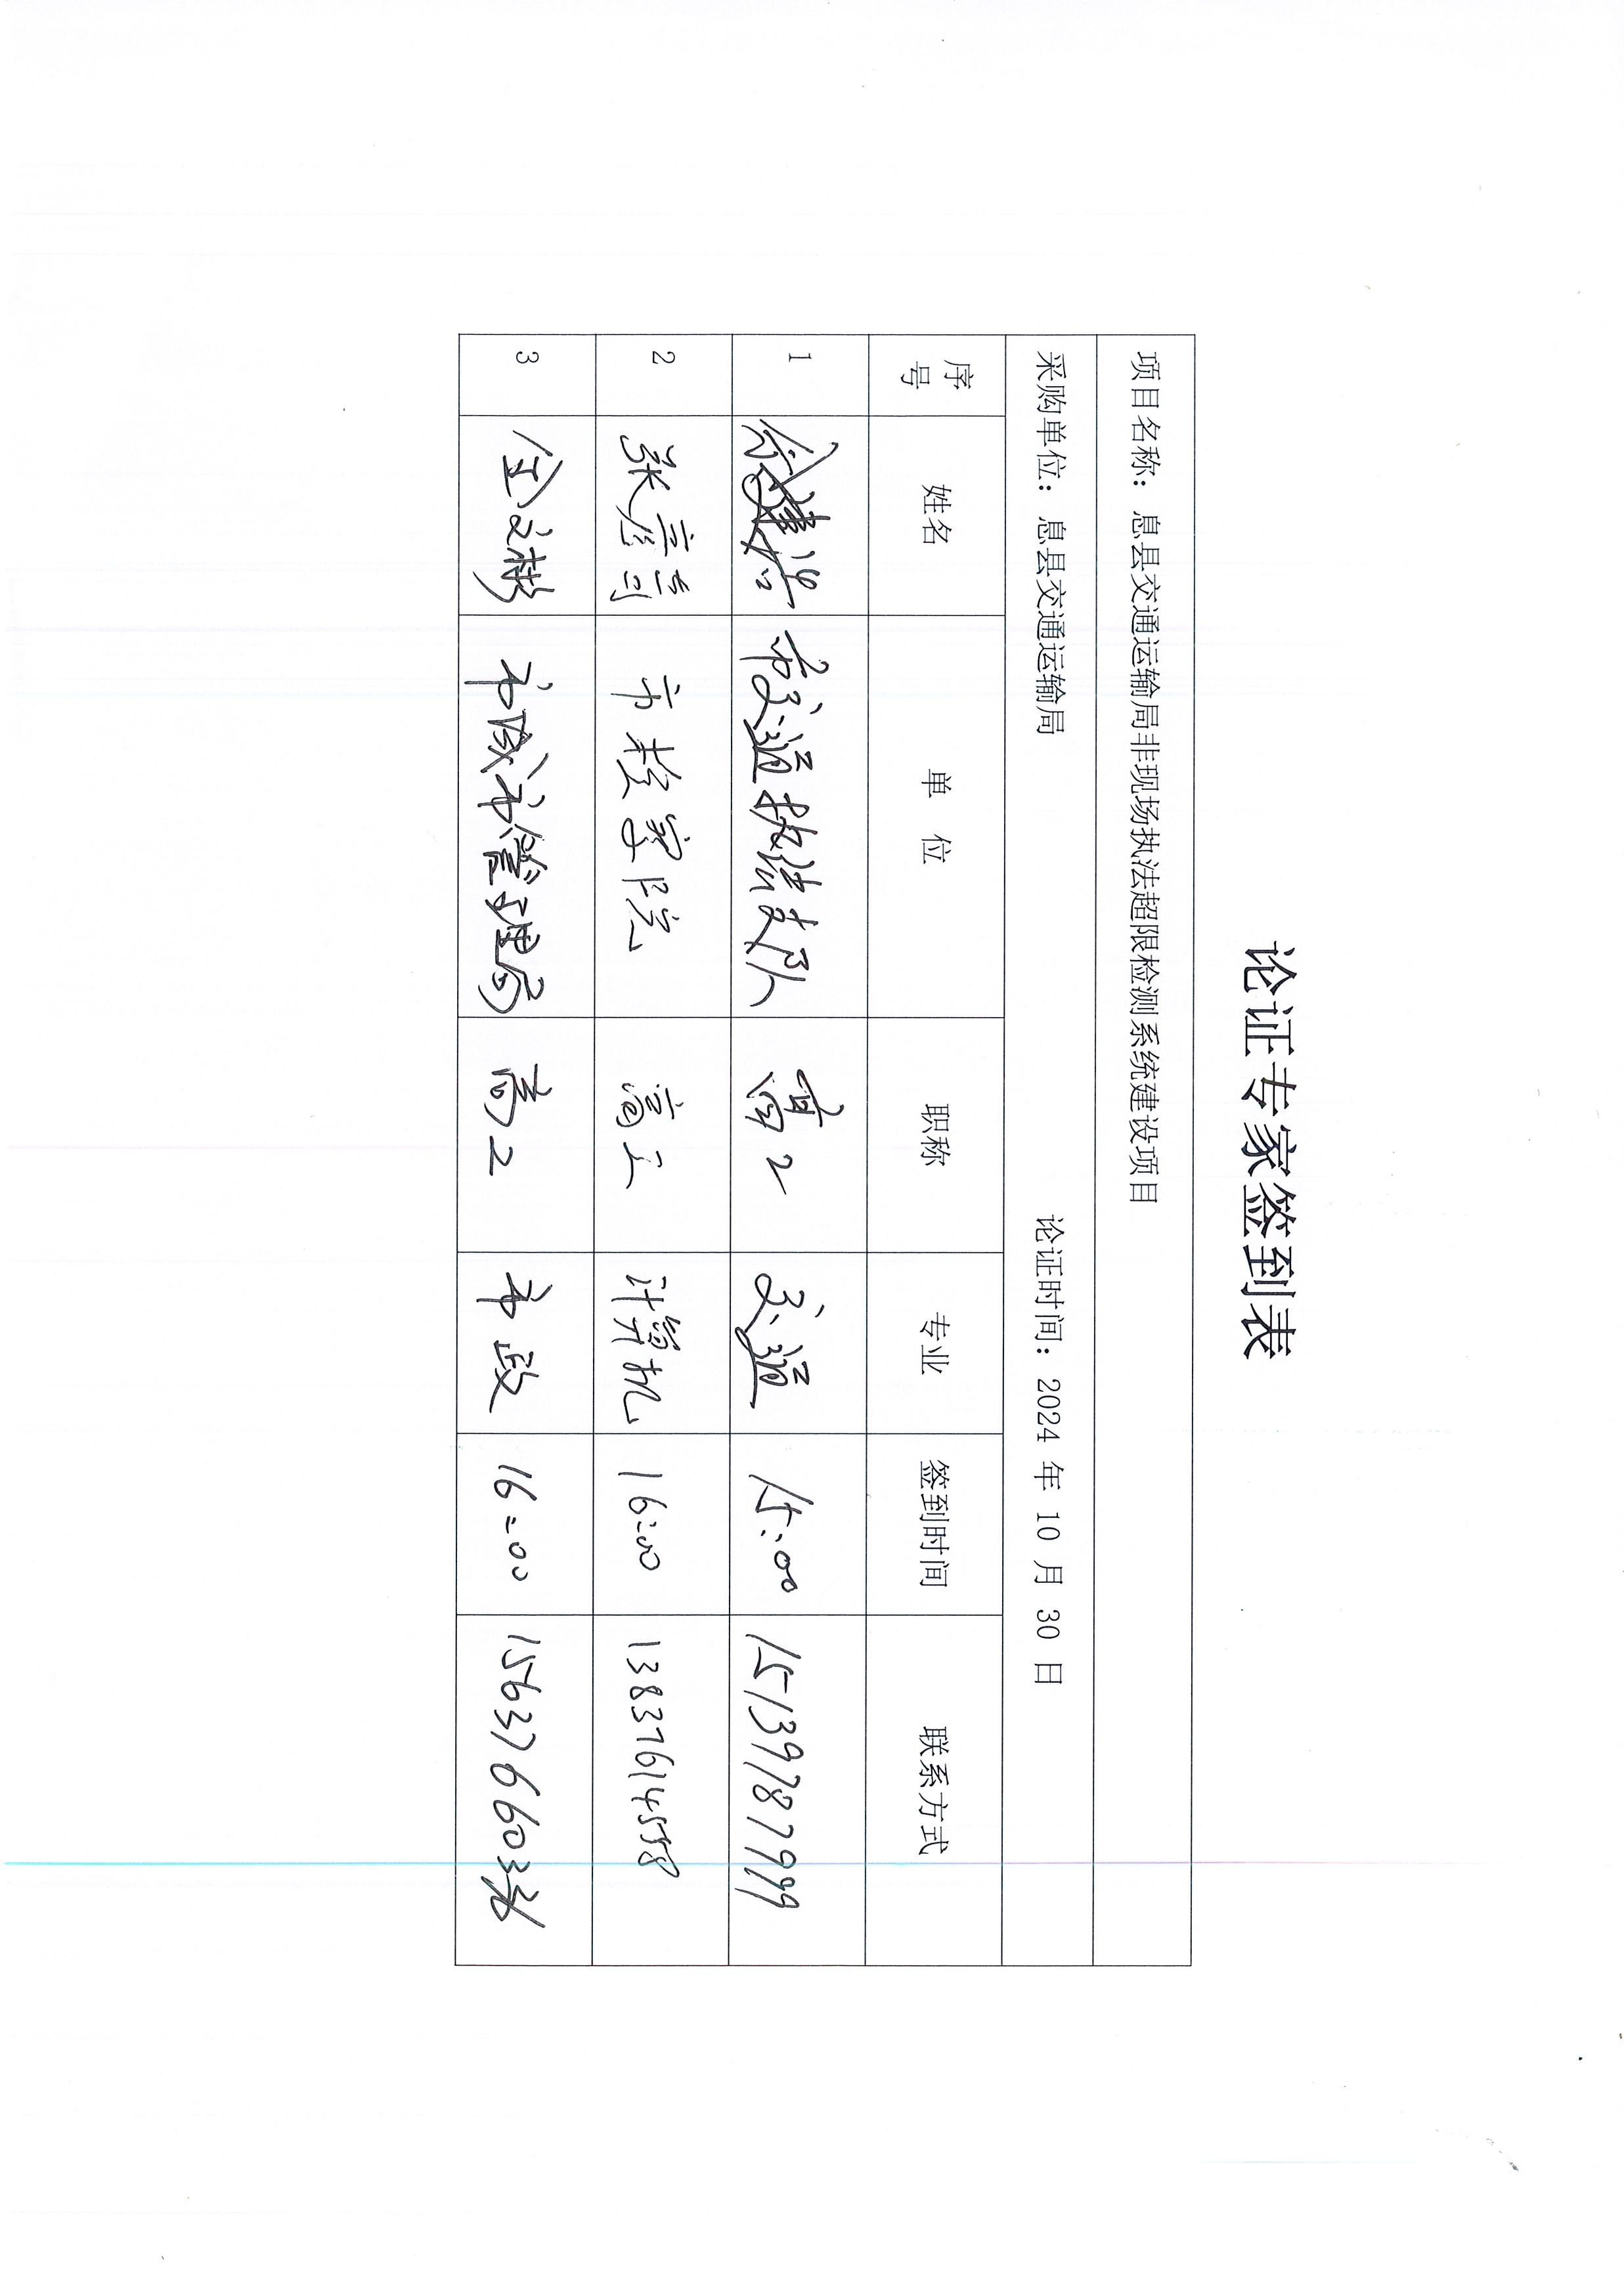 论证专家签到表
项目名称：息县交通运输局非现场执法超限检测系统建设项目
采购单位：息县交通运输局 论证时间：2024 年 10 月 30 日
序号 姓名 单 位 职称 专业 签到时间 联系方式
1 市交通执法支队 高工 交通 15:00 15139787999
2 张 市检察院 高工 计算机 16:00 13837614558
3 市城市管理局 高工 市政 16:00